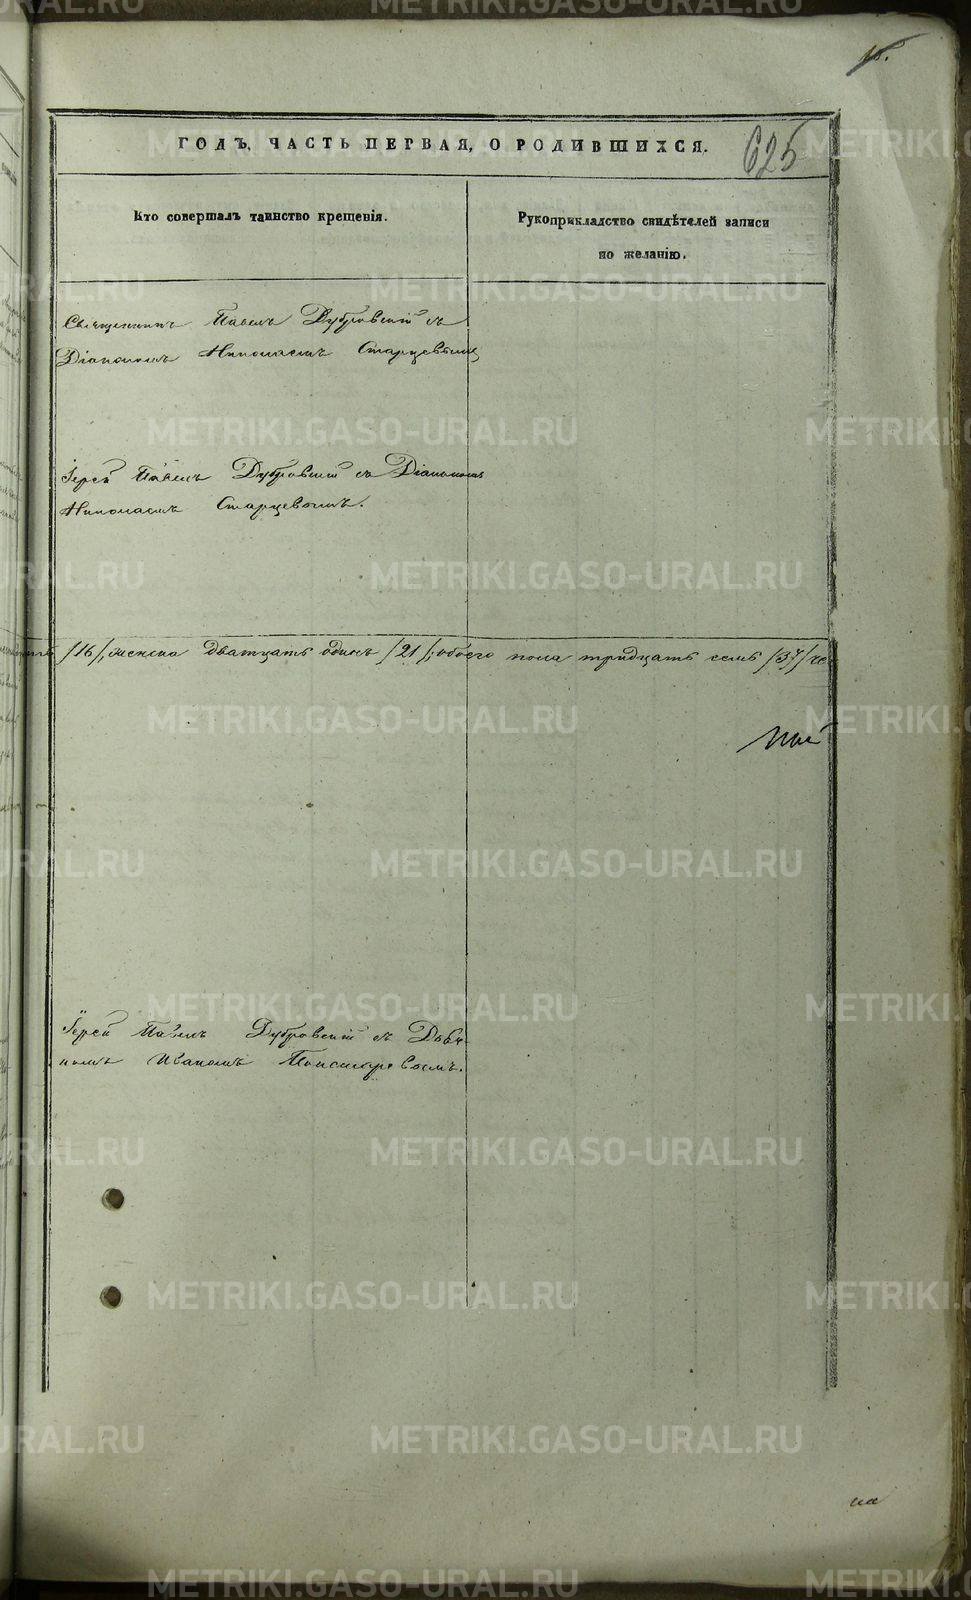 18.
ГОДЪ, ЧАСТЬ ПЕРВАЯ, О РОДИВШИХСЯ.
625
Кто совершалъ таинство крещенія.
Рукоприкладство свидѣтелей записи
по желанію.
Священникъ Павелъ Дубровскій съ
Діакономъ Николаемъ Старцевымъ
Іерей Павелъ Дубровскій съ Діакономъ
Николаемъ Старцевымъ.
/16/, женска дватцать одинъ /21/; обоего пола тридцать семь /37/ че
Іерей Павелъ Дубровскій съ
Иваномъ
на
METRIKI.GASO-URAL.RU